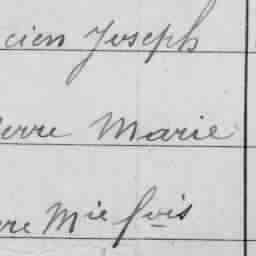 cien Joseph
ierre Marie
re Mie fois